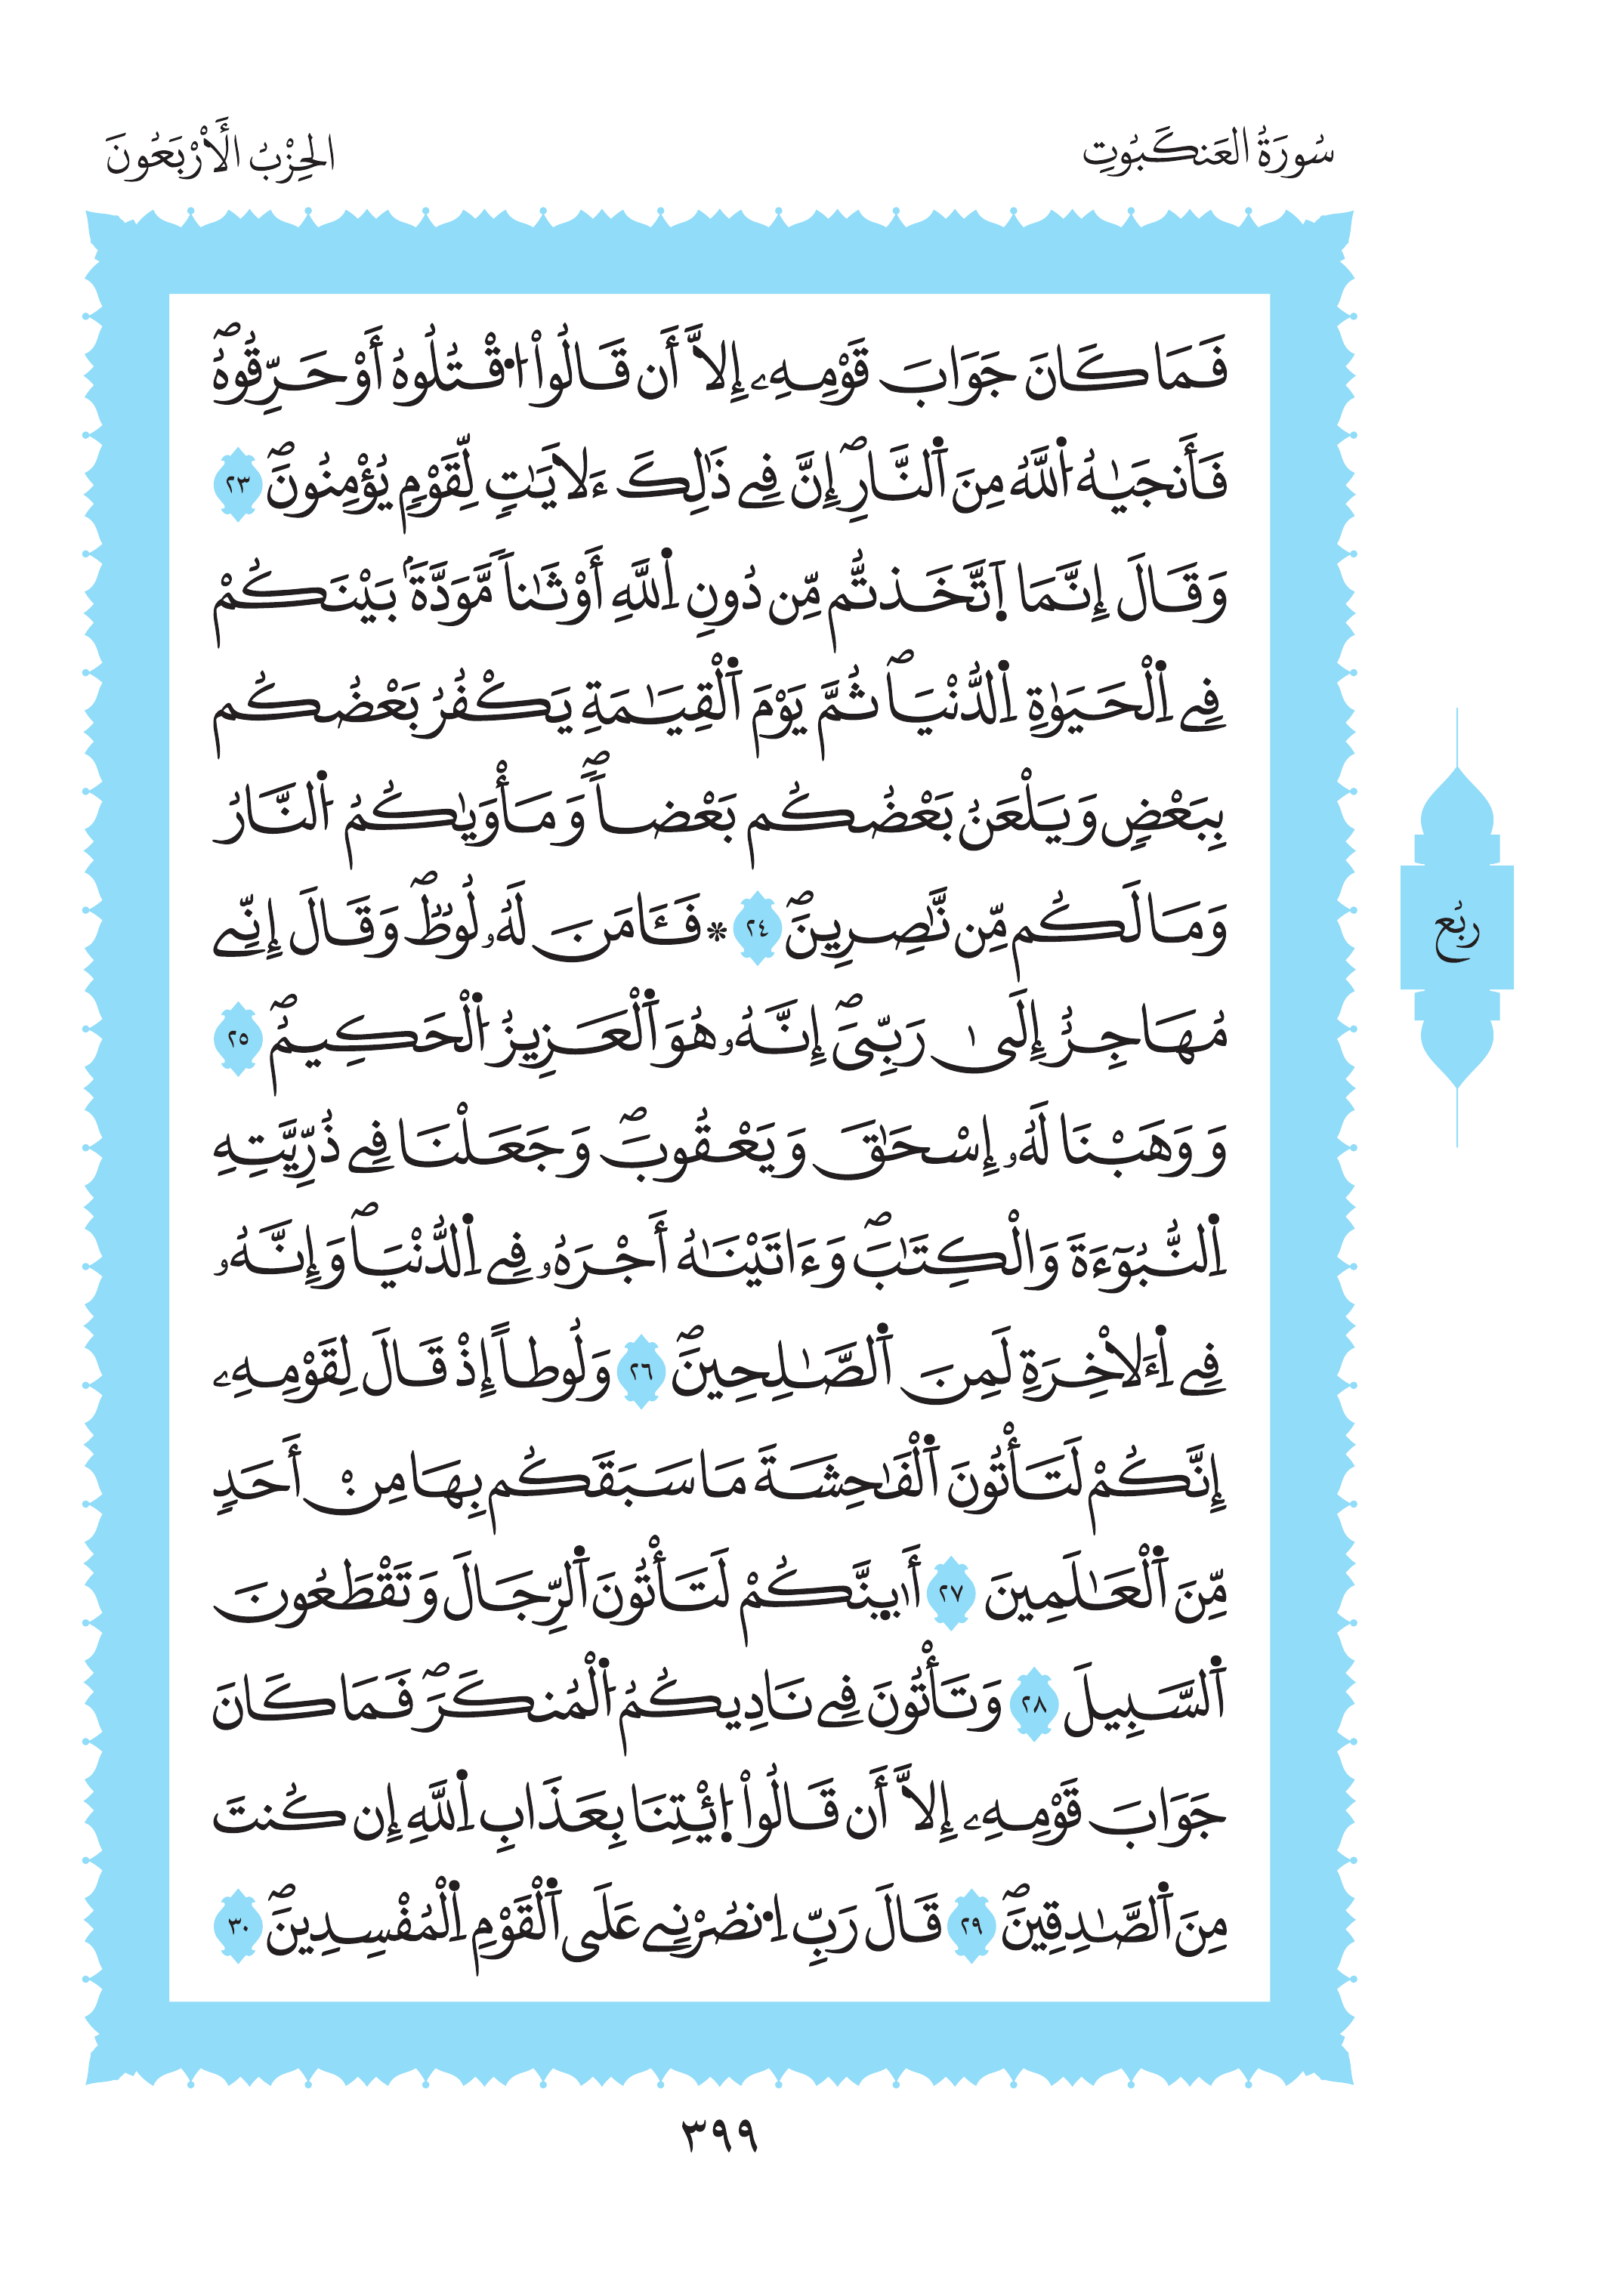 سُورَةُ العَنكَبُوتِ
الحِزْبُ الَأرْبَعُونَ
فَمَا كَانَ جَوَابَ قَوْمِهِۦ إِلَّا أَن قَالُواْ اُ۟قْتُلُوهُ أَوْ حَرِّقُوهُۖ
فَأَنجَيٰهُ اُ۬للَّهُ مِنَ اَ۬لنّ۪ارِۖ إِنَّ فِے ذَٰلِكَ ءَلَايَٰتٖ لِّقَوْمٖ يُؤْمِنُونَۖ ٢٣
وَقَالَ إِنَّمَا اَ۪تَّخَذتُّم مِّن دُونِ اِ۬للَّهِ أَوْثَٰناٗ مَّوَدَّةَۢ بَيْنَكُمْ
فِے اِ۬لْحَيَوٰةِ اِ۬لدُّنْي۪اۖ ثُمَّ يَوْمَ اَ۬لْقِيَٰمَةِ يَكْفُرُ بَعْضُكُم
بِبَعْضٖ وَيَلْعَنُ بَعْضُكُم بَعْضاٗۖ وَمَأْوَيٰكُمُ اُ۬لنَّارُ
وَمَا لَكُم مِّن نَّٰصِرِينَۖ ٢٤ ۞ فَـَٔامَنَ لَهُۥ لُوطٞۖ وَقَالَ إِنِّے
مُهَاجِرٌ إِلَىٰ رَبِّيَۖ إِنَّهُۥ هُوَ اَ۬لْعَزِيزُ اُ۬لْحَكِيمُۖ ٢٥
وَوَهَبْنَا لَهُۥ إِسْحَٰقَ وَيَعْقُوبَۖ وَجَعَلْنَا فِے ذُرِّيَّتِهِ
اِ۬لنُّبُوٓءَةَ وَالْكِتَٰبَۖ وَءَاتَيْنَٰهُ أَجْرَهُۥ فِے اِ۬لدُّنْي۪اۖ وَإِنَّهُۥ
فِے اِ۬ءَلَاخِرَةِ لَمِنَ اَ۬لصَّٰلِحِينَۖ ٢٦ وَلُوطاً إِذْ قَالَ لِقَوْمِهِۦ
إِنَّكُمْ لَتَأْتُونَ اَ۬لْفَٰحِشَةَ مَا سَبَقَكُم بِهَا مِنْ أَحَدٖ
مِّنَ اَ۬لْعَٰلَمِينَ ٢٧ أَا۟ى۪نَّكُمْ لَتَأْتُونَ اَ۬لرِّجَالَ وَتَقْطَعُونَ
اَ۬لسَّبِيلَ ٢٨ وَتَأْتُونَ فِے نَادِيكُمُ اُ۬لْمُنكَرَۖ فَمَا كَانَ
جَوَابَ قَوْمِهِۦ إِلَّا أَن قَالُواْ اُ۪ئْتِنَا بِعَذَابِ اِ۬للَّهِ إِن كُنتَ
مِنَ اَ۬لصَّٰدِقِينَۖ ٢٩ قَالَ رَبِّ اِ۟نصُرْنِے عَلَى اَ۬لْقَوْمِ اِ۬لْمُفْسِدِينَۖ ٣٠
رُبُع
٣٩٩